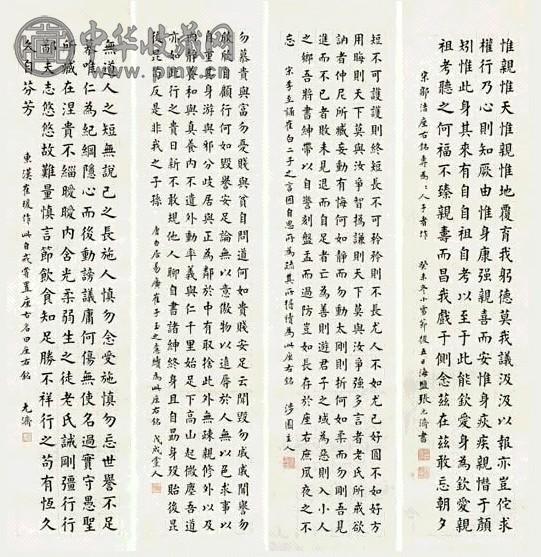 中华收藏网
惟親惟天惟親惟地覆育我躬德莫我議汲汲以報亦豈侘求
權行乃心則知厥由惟身康强親喜而安惟身疢疾親㦧于顏
矧惟此身其來有自自祖自考以至于此能欽愛身為欽愛親
祖考聽之何福不臻親壽而昌我戲于側念兹在兹敢忘朝夕
宋鄒浩座右銘專為之人子者作 癸未冬小雪節後五日海鹽張元濟書
短不可護護則終短長不可矜矜則不長尤人不如尤己好圓不如好方
用晦則天下莫與汝爭智撝謙則天下莫與汝爭强多言者老氏所戒欲
訥者仲尼所臧妄動有悔何如靜而勿動太剛則折何如柔而勿剛吾見
進而不已者敗未見退而自足者亡為善則遊君子之域為惡則入小人
之鄉吾將書紳帶以自警刻盤盂而過防豈如長存於座右庶夙夜之不
忘 宋李至誦崔白二子之言因自思所為疏其所得續為此座右銘 涉園主人
勿慕貴與富勿憂賤與貧自問道何如貴賤安足云聞毀勿戚戚聞譽勿
欣欣自顧行何如毀譽安足論無以意傲物以遠辱於人無以色求事以
自重其身游與邪分歧居與正為鄰於中有取捨此外無疎親修外以及
內靜養和與真養內不遺外動率義與仁千里始足下高山起微塵吾道
亦如此行之貴日新不敢規他人聊自書諸紳終身且自勗身歿貽後昆
後昆苟反是非我之子孫 唐白居易廣崔子玉之意續為此座右銘 戊戌黨人
無道人之短無說己之長施人慎勿念受施慎勿忘世譽不足
慕唯仁為紀綱隱心而後動謗議庸何傷無使名過實守愚聖
所臧在涅貴不緇曖曖內含光柔弱生之徒老氏誡剛彊行行
鄙夫志悠悠故難量慎言節飲食知足勝不祥行之苟有恆久
久自芬芳 東漢崔瑗作此自戒嘗置座右名曰座右銘 元濟